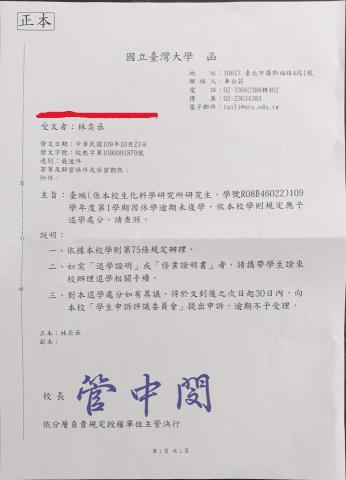 正本
國立臺灣大學 函
地 址：10617 臺北市羅斯福路4段1號
聯 絡 人：
電 話：02-33662388轉402
傳 真：02-23634383
電子郵件：taili@ntu.edu.tw
受文者：林奕丞
發文日期：中華民國109年10月23日
發文字號：校教字第1090091879號
速別：最速件
密等及解密條件或保密期限：
附件：
主旨：臺端(係本校生化科學研究所研究生，學號R08B46022)109
學年度第1學期因休學逾期未復學，依本校學則規定應予
退學處分，請查照。
說明：
一、依據本校學則第75條規定辦理。
二、如需「退學證明」或「修業證明書」者，請攜帶學生證來
校辦理退學相關手續。
三、對本退學處分如有異議，得於文到後之次日起30日內，向
本校「學生申訴評議委員會」提出申訴，逾期不予受理。
正本：林奕丞
副本：
校長 管中閔
依分層負責規定授權單位主管決行
第1頁 共1頁